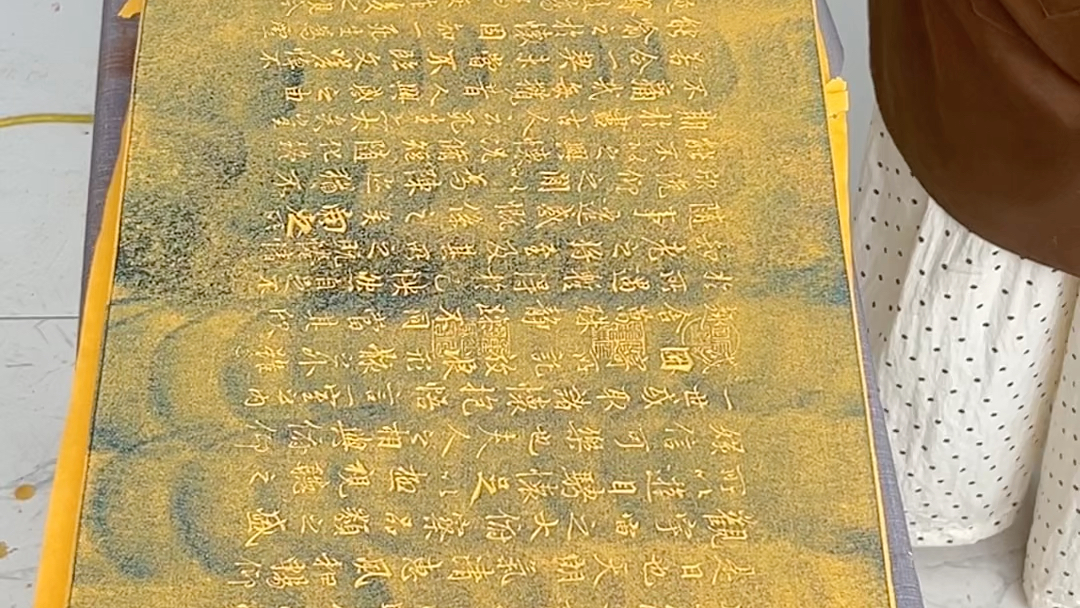 是日也天朗氣清惠風和暢仰
觀宇宙之大俯察品類之盛
所以遊目騁懷足以極視聽之
娛信可樂也夫人之相與俯仰
一世或取諸懷抱悟言一室之內
因寄所託放浪形骸之外雖
趣舍萬殊靜躁不同當其欣
於所遇暫得於己怏然自足不
知老之將至及其所之既惓情
隨事遷感慨係之矣向之
欣俛仰之閒以為陳迹猶不
能不以之興懷況脩短隨化終
期於盡古人云死生亦大矣豈
不痛哉每攬昔人興感之由
若合一契未嘗不臨文嗟悼不
能喻之於懷固知一死生為虛